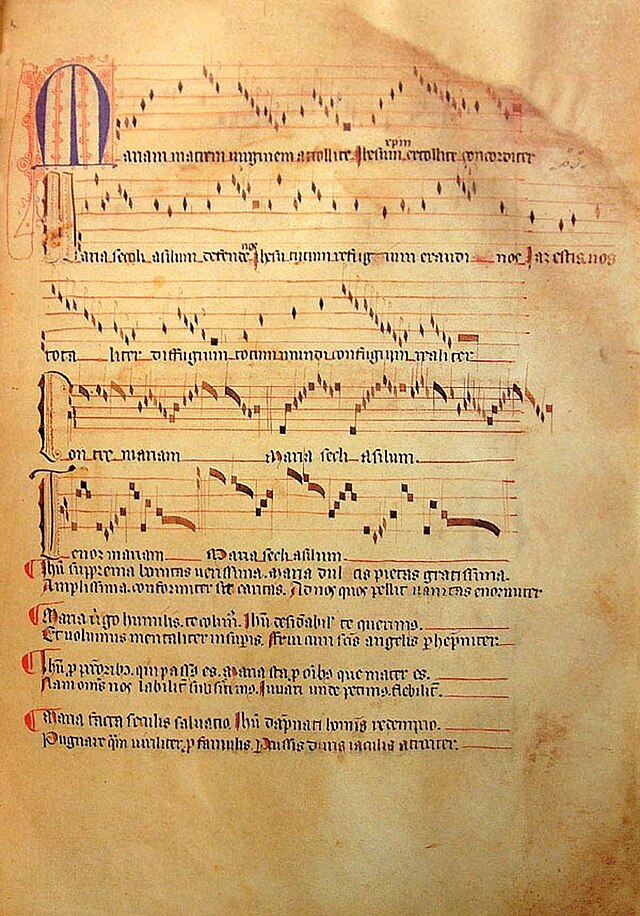 Mariam matrem uirginem attollite. Ihesum xpm extollite concorditer
Maria secli asilum defende nos Ihesu tutum refugium exaudi nos Iam estis nos
totaliter diffugium totum mundi confugium realiter
Contre mariam Maria secli asilum.
Tenor mariam Maria secli asilum.
Ihu suprema bonitas uerissima. Maria dulcis pietas gratissima.
Amplissima conformiter set caritas. Ad nos quos pellit uanitas enormiter
Maria uirgo humilis te colim9. Ihu desiderabil' te querim9.
Et uolumus mentaliter in supis. Frui cum scis angelis phenniter.
Ihu p pctoribs. qui passus es. Maria sta p oibs que mater es.
Nam omes nos labilit' subsistim9. Iuuari unde petim9. flebilit'.
Maria facta seculis saluatio. Ihu dapnati hominis redempcio.
Pugnare qm uiriliter p famulis. Pcussis duris iaculis atrociter.